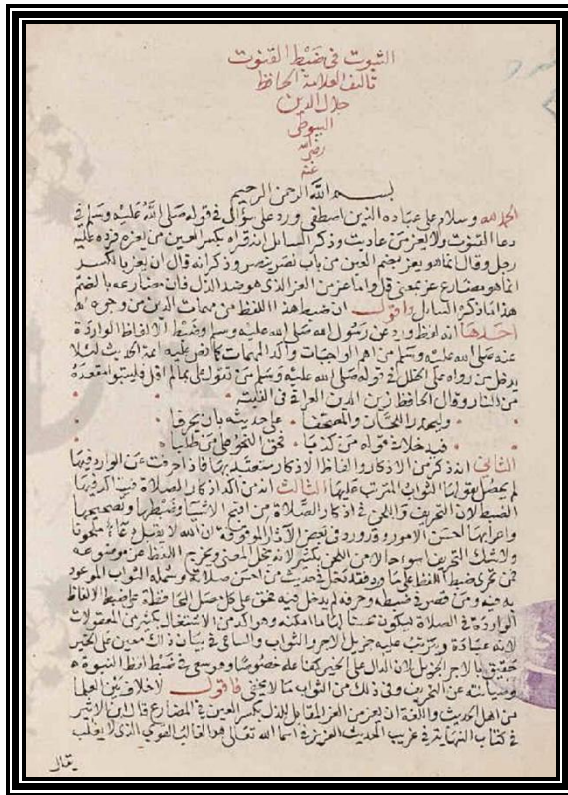 الثبوت في ضبط القنوت
تاليف العلامة الحافظ
جلال الدين
السيوطي
رضي الله
عنه
بسم الله الرحمن الرحيم
الحمد لله وسلام على عباده الذين اصطفى ورد على سؤال في قوله صلى الله عليه وسلم في
دعا القنوت ولا يعز من عاديت وذكر السايل انه قراه بكسر العين من يعز فرده عليه
رجل وقال انما هو يعز بضم العين من باب نصر ينصر وذكر انه قال ان يعز بالكسر
انما هو مضارع عز بمعنى قل واما عز من العز الذي هو ضد الذل فان مضارعه بالضم
هذا ما ذكره السايل واقول ان ضبط هذا اللفظ من مهمات الدين من وجوه
احدها انه لفظ ورد عن رسول الله صلى الله عليه وسلم وضبط الالفاظ الواردة
عنه صلى الله عليه وسلم من اهم الواجبات واكد المهمات كما نص عليه ائمة الحديث ليلا
يدخل من رواه على الخلل في قوله صلى الله عليه وسلم من تقول على مالم اقل فليتبوا مقعده
من النار وقال الحافظ زين الدين العراقي في الفيته
وليحذر اللحان والمصحفا على حديثه بان يحرفا
فيدخلا في قوله من كذبا فحق النحو على من طلبا
الثاني انه ذكر من الاذكار والفاظ الاذكار متعبد بها فاذا حرفت عن الوارد فيها
لم يحصل بقولها الثواب المترتب عليها الثالث انه من اكد اذكار الصلاة فيتاكد فيها
الضبط لان التحريف واللحن في اذكار الصلاة من اقبح الاشيا وضبطها وتصحيحها
واعرابها احسن الامور وقد ورد في بعض الاثار الموقوفة ان الله لا يقبل دعا ملحونا
ولا شك التحريف اسوء حالا من اللحن بكثير لانه يخل المعنى ويخرج اللفظ عن موضوعه
فمن تحرى ضبط اللفظ على ما ورد فقد دخل في حديث من احسن صلاته وشمله الثواب الموعود
به فيه ومن قصر في ضبطه وحرفه لم يدخل فيه فحق على كل مصل المحافظة على ضبط الالفاظ
الواردة في الصلاة ليكون محسنا لها ما امكنه وهو اكد من الاشتغال بكثير من المعقولات
لانه عبادة ويترتب عليه جزيل الاجر والثواب والساعي في بيان ذلك معين على الخير
حقيق بالاجر الجزيل لان الدال على الخير كفاعله خصوصا وهو سعي في ضبط لفظ النبوة
وصيانته عن التحريف وفي ذلك من الثواب ما لا يخفى فاقول لا خلاف بين العلما
من اهل الحديث واللغة ان يعز من العز المقابل للذل بكسر العين في المضارع قال ابن الاثير
في كتاب النهاية في غريب الحديث العزيز في اسما الله تعالى هو الغالب القوي الذي لا يغلب
يقال